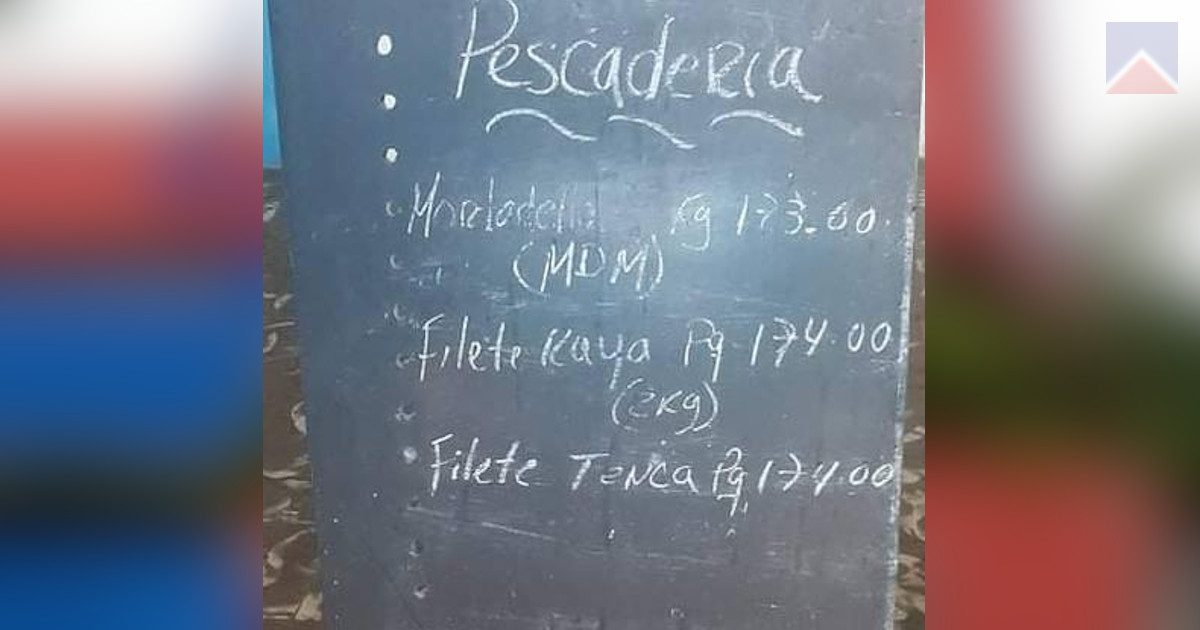 Pescadería
Mortadella Kg 173.00
(MDM)
Filete Raya Pq 174.00
(2Kg)
Filete Tenca Pq 174.00